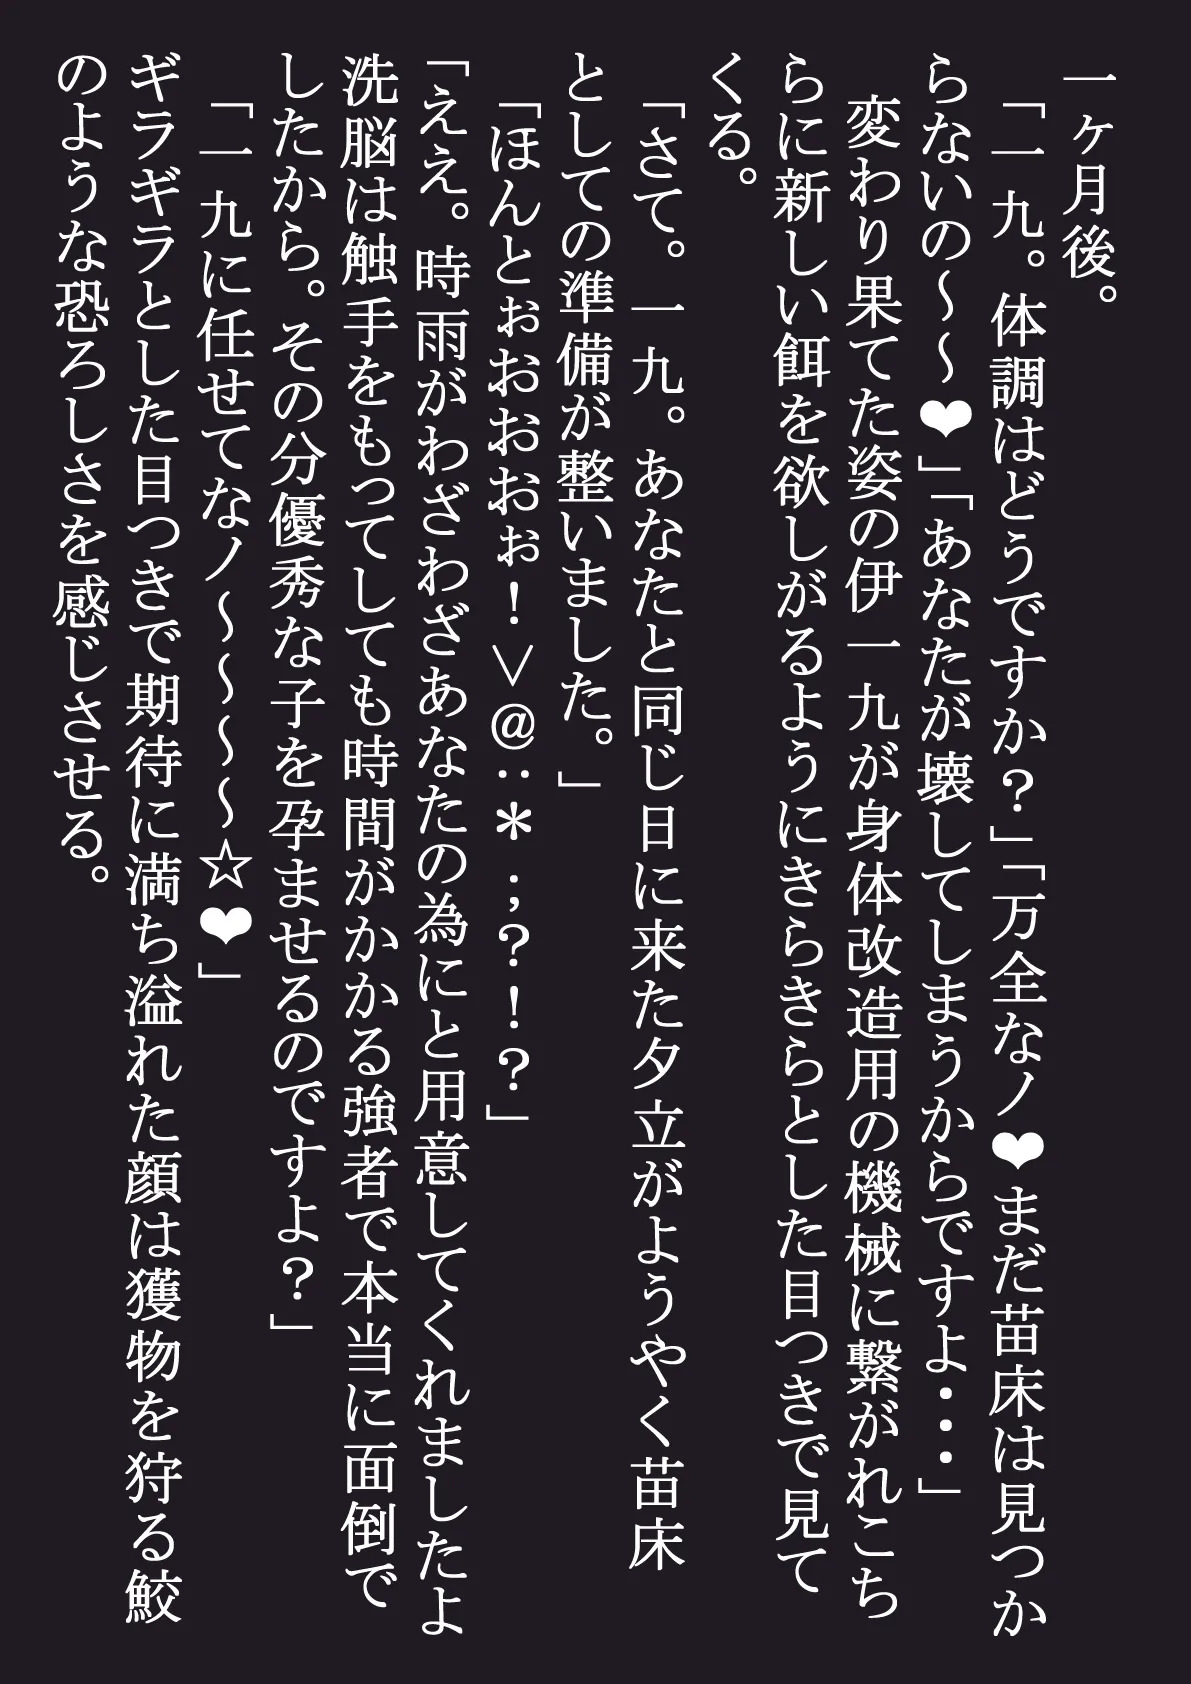 一ヶ月後。
「一九。体調はどうですか？」「万全なノ❤まだ苗床は見つか
らないの～～❤」「あなたが壊してしまうからですよ・・・」
変わり果てた姿の伊一九が身体改造用の機械に繋がれこち
らに新しい餌を欲しがるようにきらきらとした目つきで見て
くる。
「さて。一九。あなたと同じ日に来た夕立がようやく苗床
としての準備が整いました。」
「ほんとぉおおおおぉ！∨＠：＊；？！？」
「ええ。時雨がわざわざあなたの為にと用意してくれましたよ
洗脳は触手をもってしても時間がかかる強者で本当に面倒で
したから。その分優秀な子を孕ませるのですよ？」
「一九に任せてなノ～～～～☆❤」
ギラギラとした目つきで期待に満ち溢れた顔は獲物を狩る鮫
のような恐ろしさを感じさせる。